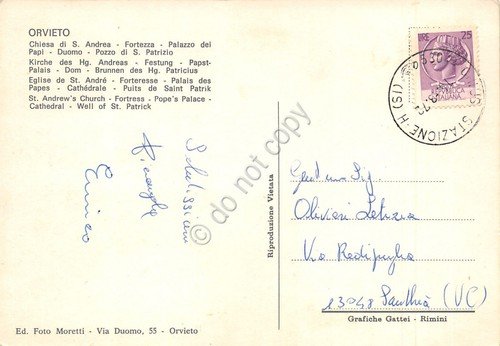 ORVIETO
Chiesa di S. Andrea - Fortezza - Palazzo dei
Papi - Duomo - Pozzo di S. Patrizio
Kirche des Hg. Andreas - Festung - Papst-
Palais - Dom - Brunnen des Hg. Patricius
Eglise de St. André - Forteresse - Palais des
Papes - Cathédrale - Puits de Saint Patrik
St. Andrew's Church - Fortress - Pope's Palace -
Cathedral - Well of St. Patrick
Salutissimi
Enrico
Ed. Foto Moretti - Via Duomo, 55 - Orvieto
Riproduzione Vietata
LIRE 25
REPUBBLICA
ITALIANA
STAZIONE-H(SI)
Gent.ma Sig.
Olivieri Letizia
Via Redipuglia
13048 Santhià (VC)
Grafiche Gattei - Rimini
© do not copy